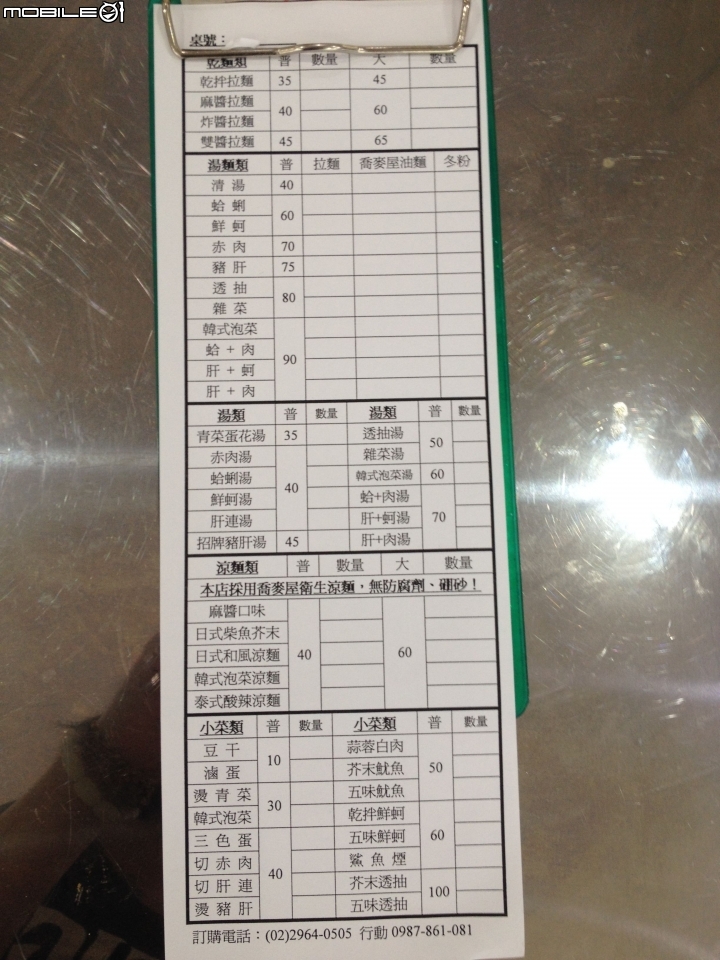 MOBILE01
桌號：
乾麵類 普 數量 大 數量
乾拌拉麵 35 45
麻醬拉麵 40 60
炸醬拉麵
雙醬拉麵 45 65
湯麵類 普 拉麵 喬麥屋油麵 冬粉
清湯 40
蛤蜊 60
鮮蚵
赤肉 70
豬肝 75
透抽 80
雜菜
韓式泡菜 90
蛤+肉
肝+蚵
肝+肉
湯類 普 數量 湯類 普 數量
青菜蛋花湯 35 透抽湯 50
赤肉湯 40 雜菜湯
蛤蜊湯 韓式泡菜湯 60
鮮蚵湯 蛤+肉湯 70
肝連湯 肝+蚵湯
招牌豬肝湯 45 肝+肉湯
涼麵類 普 數量 大 數量
本店採用喬麥屋衛生涼麵，無防腐劑、硼砂！
麻醬口味 40 60
日式柴魚芥末
日式和風涼麵
韓式泡菜涼麵
泰式酸辣涼麵
小菜類 普 數量 小菜類 普 數量
豆干 10 蒜蓉白肉 50
滷蛋 芥末魷魚
燙青菜 30 五味魷魚
韓式泡菜 乾拌鮮蚵 60
三色蛋 40 五味鮮蚵
切赤肉 鯊魚煙
切肝連 芥末透抽 100
燙豬肝 五味透抽
訂購電話：(02)2964-0505 行動 0987-861-081